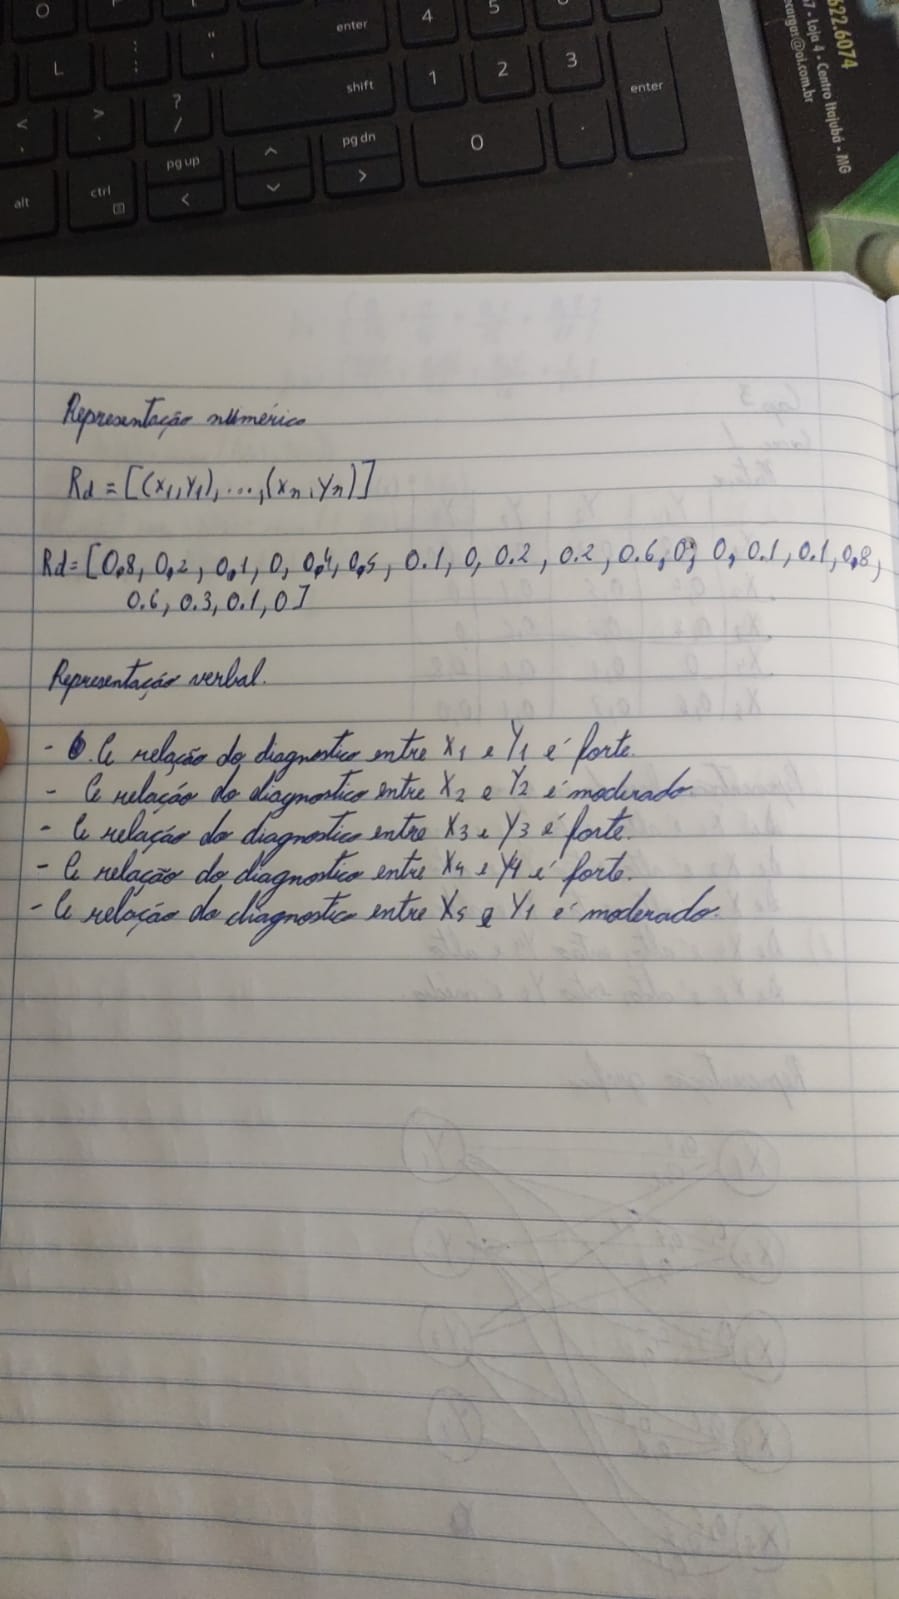 O
enter
4
5
L
:
;
"
'
shift
1
2
3
enter
<
,
>
.
?
/
pg up
pg dn
0
.
alt
ctrl
<
>
622.6074
47 - Loja 4 - Centro Itajubá - MG
ecargas@oi.com.br
Representação numérico
Rd = [(x1,y1), ..., (xn, yn)]
Rd = [0,8, 0,2, 0,1, 0, 0,4, 0,5, 0.1, 0, 0.2, 0.2, 0.6, 0, 0, 0.1, 0.1, 0,8,
0.6, 0.3, 0.1, 0]
Representação verbal.
- A relação do diagnostico entre X1 e Y1 é forte.
- A relação do diagnostico entre X2 e Y2 é moderado.
- A relação do diagnostico entre X3 e Y3 é forte.
- A relação do diagnostico entre X4 e Y4 é forte.
- A relação do diagnostico entre X5 e Y1 é moderado.